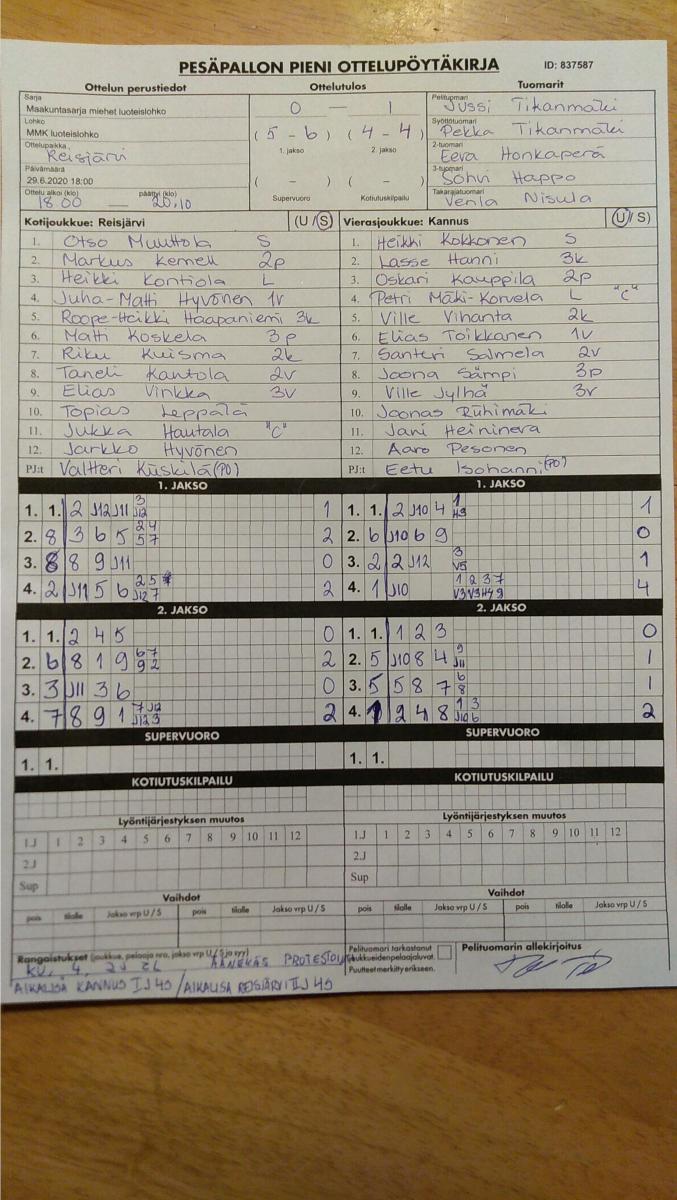 PESÄPALLON PIENI OTTELUPÖYTÄKIRJA ID: 837587
Ottelun perustiedot Ottelutulos Tuomarit
Sarja
Maakuntasarja miehet luoteislohko
Lohko
MMK luoteislohko
Ottelupaikka
Reisjärvi
Päivämäärä
29.6.2020 18:00
Ottelu alkoi (klo) päättyi (klo)
18.00 — 20,10
0 — 1
(5 - 6) (4 - 4)
1. jakso 2. jakso
( - ) ( - )
Supervuoro Kotiutuskilpailu
Pelituomari
Jussi Tikanmäki
Syöttötuomari
Pekka Tikanmäki
2-tuomari
Eeva Honkaperä
3-tuomari
Sohvi Happo
Takarajatuomari
Venla Nisula
Kotijoukkue: Reisjärvi (U/S) Vierasjoukkue: Kannus (U/S)
1. Otso Muuttola S 1. Heikki Kokkonen S
2. Markus Kemell 2p 2. Lasse Hanni 3k
3. Heikki Kontiola L 3. Oskari Kauppila 2p
4. Juha-Matti Hyvönen 1v 4. Petri Mäki-Korvela L "C"
5. Roope-Heikki Haapaniemi 3k 5. Ville Vihanta 2k
6. Matti Koskela 3p 6. Elias Toikkanen 1v
7. Riku Kuisma 2k 7. Santeri Salmela 2v
8. Taneli Kantola 2v 8. Joona Sämpi 3p
9. Elias Vinkka 3v 9. Ville Jylhä 3v
10. Topias Leppälä 10. Joonas Riihimäki
11. Jukka Hautala "C" 11. Jani Heininera
12. Jarkko Hyvönen 12. Aaro Pesonen
PJ:t Valtteri Kiiskilä (PO) PJ:t Eetu Isohanni (PO)
1. JAKSO 1. JAKSO
1. 1. 2 J12 J11 3 J12 1 1. 1. 2 J10 4 1
2. 8 3 6 5 24 57 2 2. 6 J10 6 9 0
3. 8 8 9 J11 0 3. 2 2 J12 3 V5 1
4. 2 J11 5 6 25 J12 7 2 4. 1 J10 1 2 3 7 4
2. JAKSO 2. JAKSO
1. 1. 2 4 5 0 1. 1. 1 2 3 0
2. 6 8 1 9 67 92 2 2. 5 J10 8 4 9 J11 1
3. 3 J11 3 6 0 3. 5 5 8 7 6 8 1
4. 7 8 9 1 7 J12 J12 3 2 4. 1 9 4 8 1 3 J10 6 2
SUPERVUORO SUPERVUORO
1. 1. 1. 1.
KOTIUTUSKILPAILU KOTIUTUSKILPAILU
Lyöntijärjestyksen muutos Lyöntijärjestyksen muutos
1.J 1 2 3 4 5 6 7 8 9 10 11 12 1.J 1 2 3 4 5 6 7 8 9 10 11 12
2.J 2.J
Sup Sup
Vaihdot Vaihdot
pois tilalle Jakso vrp U / S pois tilalle Jakso vrp U / S pois tilalle Jakso vrp U / S pois tilalle Jakso vrp U / S
Rangaistukset (joukkue, pelaaja nro, jakso vrp U / S ja syy)
KU. 4. 2J 2L ÄÄNEKÄS
AIKALISÄ KANNUS IJ 4S / AIKALISÄ REISJÄRVI IIJ 4S
Pelituomari tarkastanut
joukkueidenpelaajaluvat.
Puutteet merkitty erikseen.
Pelituomarin allekirjoitus